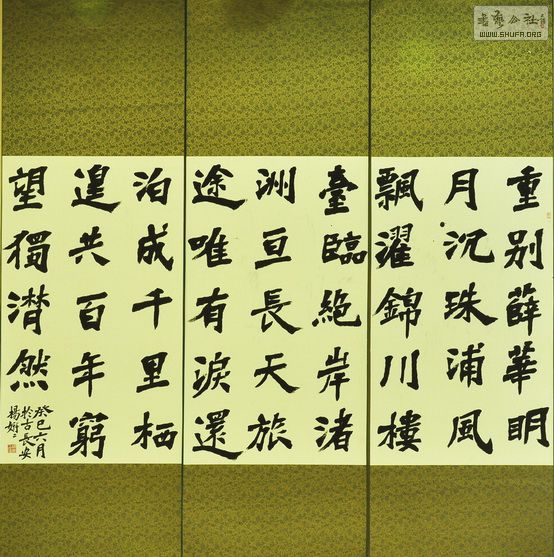 重別薛華明
月沉珠浦風
飄濯錦川樓
臺臨絶岸渚
洲亘長天旅
途唯有淚還
泊成千里栖
遑共百年窮
望獨潸然
癸巳六月
於古長安
楊
WWW.SHUFA.ORG